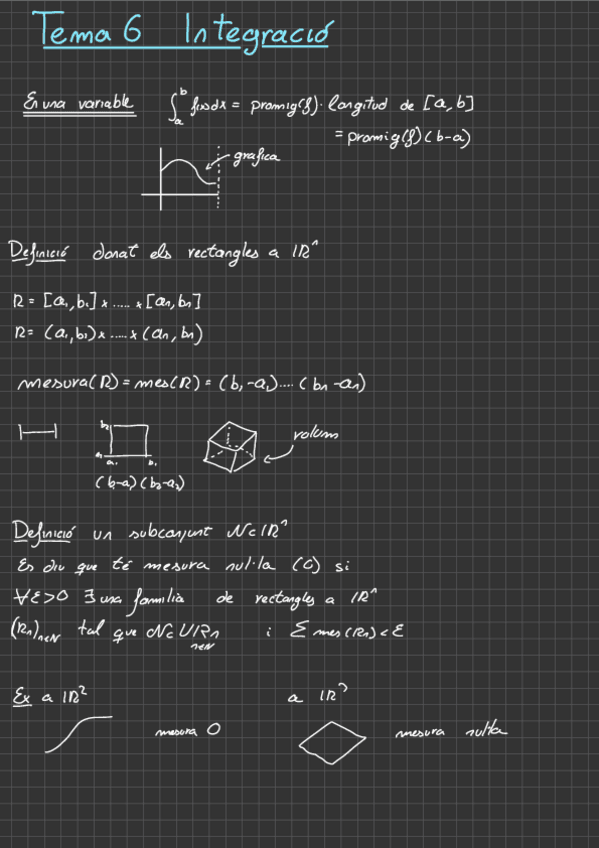 Tema 6 Integració
En una variable ∫ₐᵇ f(x)dx = promig(f)· longitud de [a,b]
= promig(f)(b-a)
grafica
Definició donat els rectangles a ℝⁿ
R = [a₁,b₁] × ..... × [aₙ,bₙ]
R = (a₁,b₁) × ..... × (aₙ,bₙ)
mesura(R) = mes(R) = (b₁-a₁)....(bₙ-aₙ)
volum
b₂
a₁ b₁
(b-a)(b₂-a₂)
Definició un subconjunt N⊂ℝⁿ
Es diu que té mesura nul·la (0) si
∀ε>0 ∃ una familia de rectangles a ℝⁿ
(Rₙ)ₙ∈ℕ tal que N⊂∪Rₙ i Σ mes(Rₙ)<ε
n∈ℕ
Ex a ℝ² a ℝ³
mesura 0 mesura nul·la